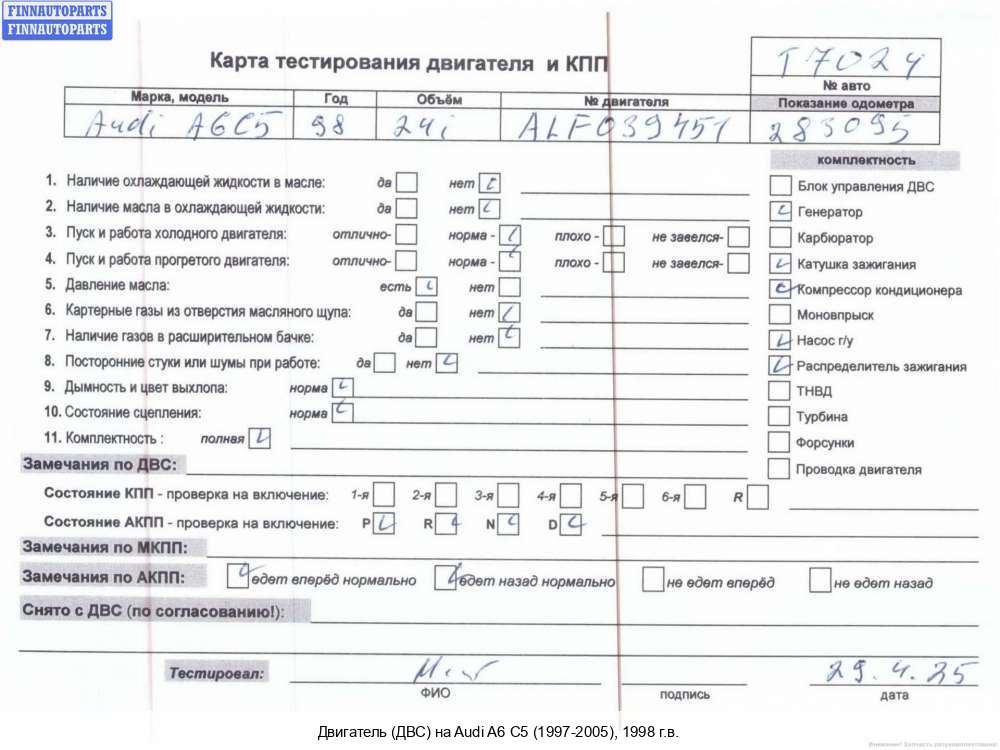 FINNAUTOPARTS
FINNAUTOPARTS
Карта тестирования двигателя и КПП
T7024
№ авто
Марка, модель Год Объём № двигателя Показание одометра
Audi A6C5 98 24i ALF039451 283095
комплектность
1. Наличие охлаждающей жидкости в масле: да нет
Блок управления ДВС
2. Наличие масла в охлаждающей жидкости: да нет
Генератор
3. Пуск и работа холодного двигателя: отлично- норма - плохо - не завелся-
Карбюратор
4. Пуск и работа прогретого двигателя: отлично- норма - плохо - не завелся-
Катушка зажигания
5. Давление масла: есть нет
Компрессор кондиционера
6. Картерные газы из отверстия масляного щупа: да нет
Моновпрыск
7. Наличие газов в расширительном бачке: да нет
Насос г/у
8. Посторонние стуки или шумы при работе: да нет
Распределитель зажигания
9. Дымность и цвет выхлопа: норма
ТНВД
10. Состояние сцепления: норма
Турбина
11. Комплектность : полная
Форсунки
Замечания по ДВС:
Проводка двигателя
Состояние КПП - проверка на включение: 1-я 2-я 3-я 4-я 5-я 6-я R
Состояние АКПП - проверка на включение: P R N D
Замечания по МКПП:
Замечания по АКПП: едет вперёд нормально едет назад нормально не едет вперёд не едет назад
Снято с ДВС (по согласованию!):
Тестировал: 29.4.25
ФИО подпись дата
Двигатель (ДВС) на Audi A6 C5 (1997-2005), 1998 г.в.